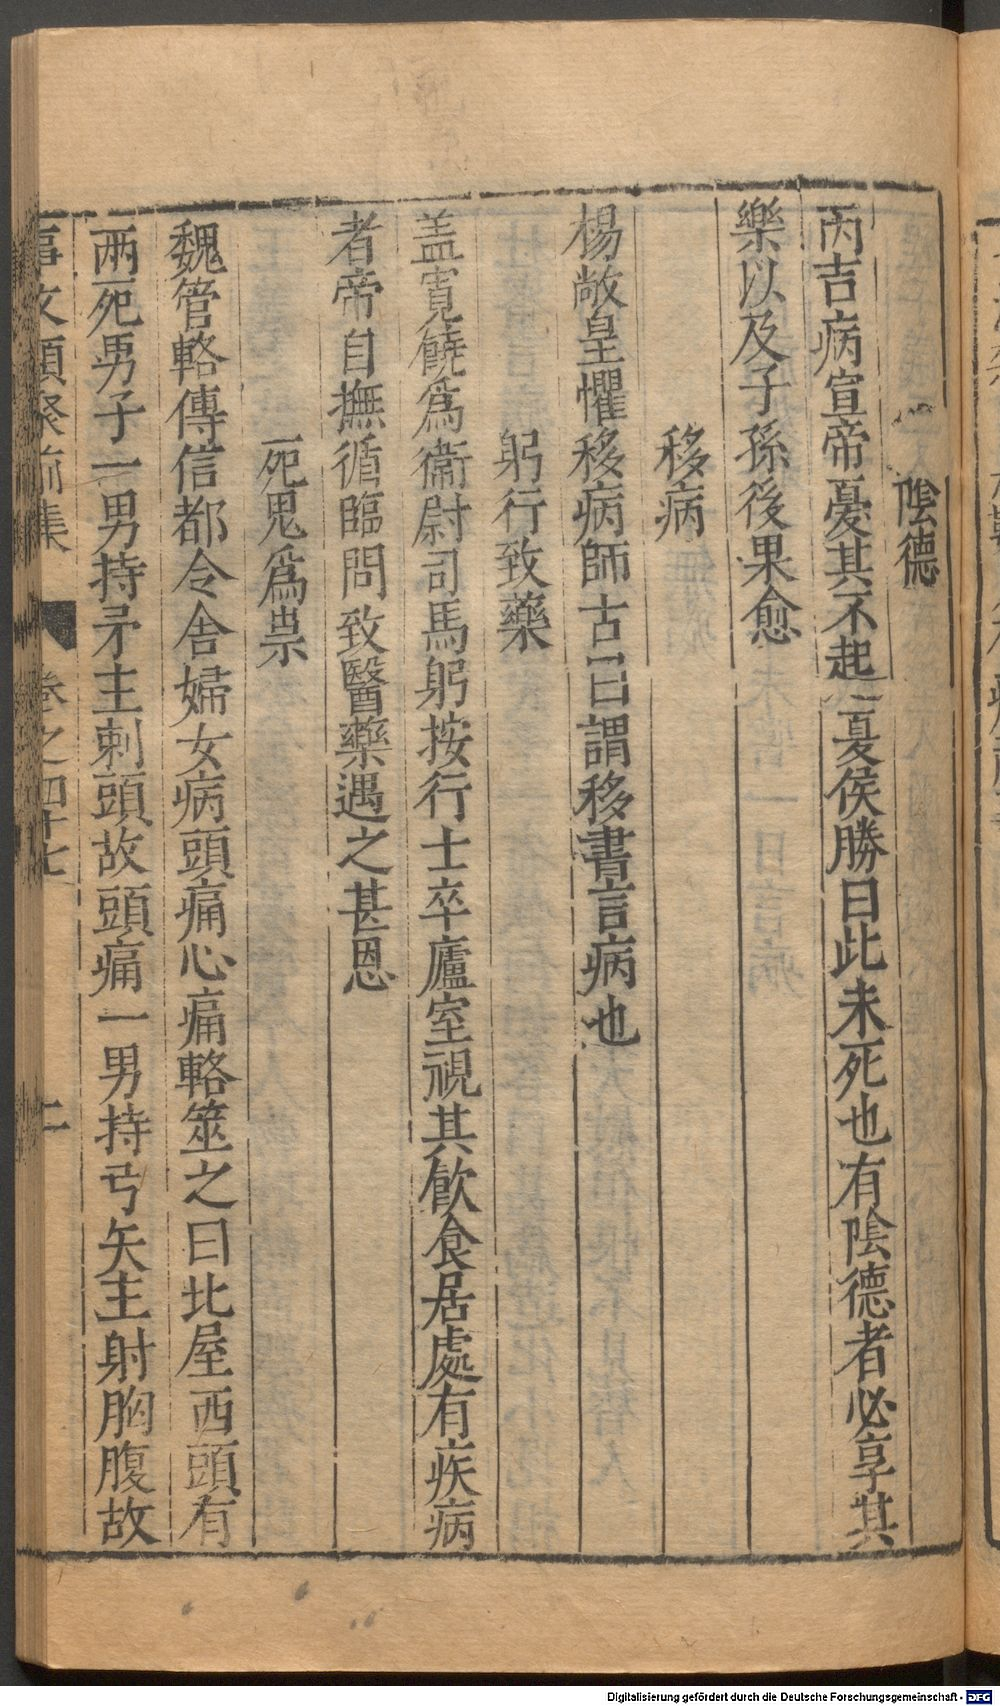 陰德
丙吉病宣帝憂其不起夏侯勝曰此未死也有陰德者必享其
樂以及子孫後果愈
移病
楊敞皇懼移病師古曰謂移書言病也
躬行致藥
盖寬饒為衞尉司馬躬按行士卒廬室視其飲食居處有疾病
者帝自撫循臨問致醫藥遇之甚恩
死鬼為祟
魏管輅傳信都令舍婦女病頭痛心痛輅筮之曰北屋西頭有
兩死男子一男持矛主刺頭故頭痛一男持弓矢主射胸腹故
事文類聚前集 卷之四十七 二
Digitalisierung gefördert durch die Deutsche Forschungsgemeinschaft - DFG